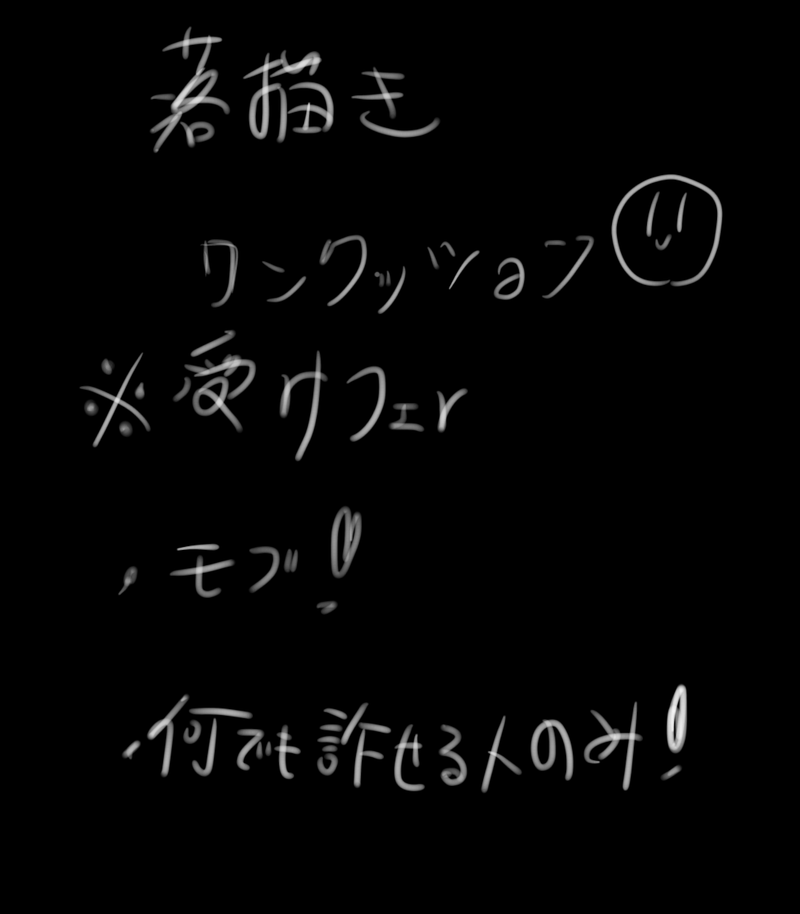 落描き
ワンクッション
※受けフェr
・モブ!
・何でも許せる人のみ!